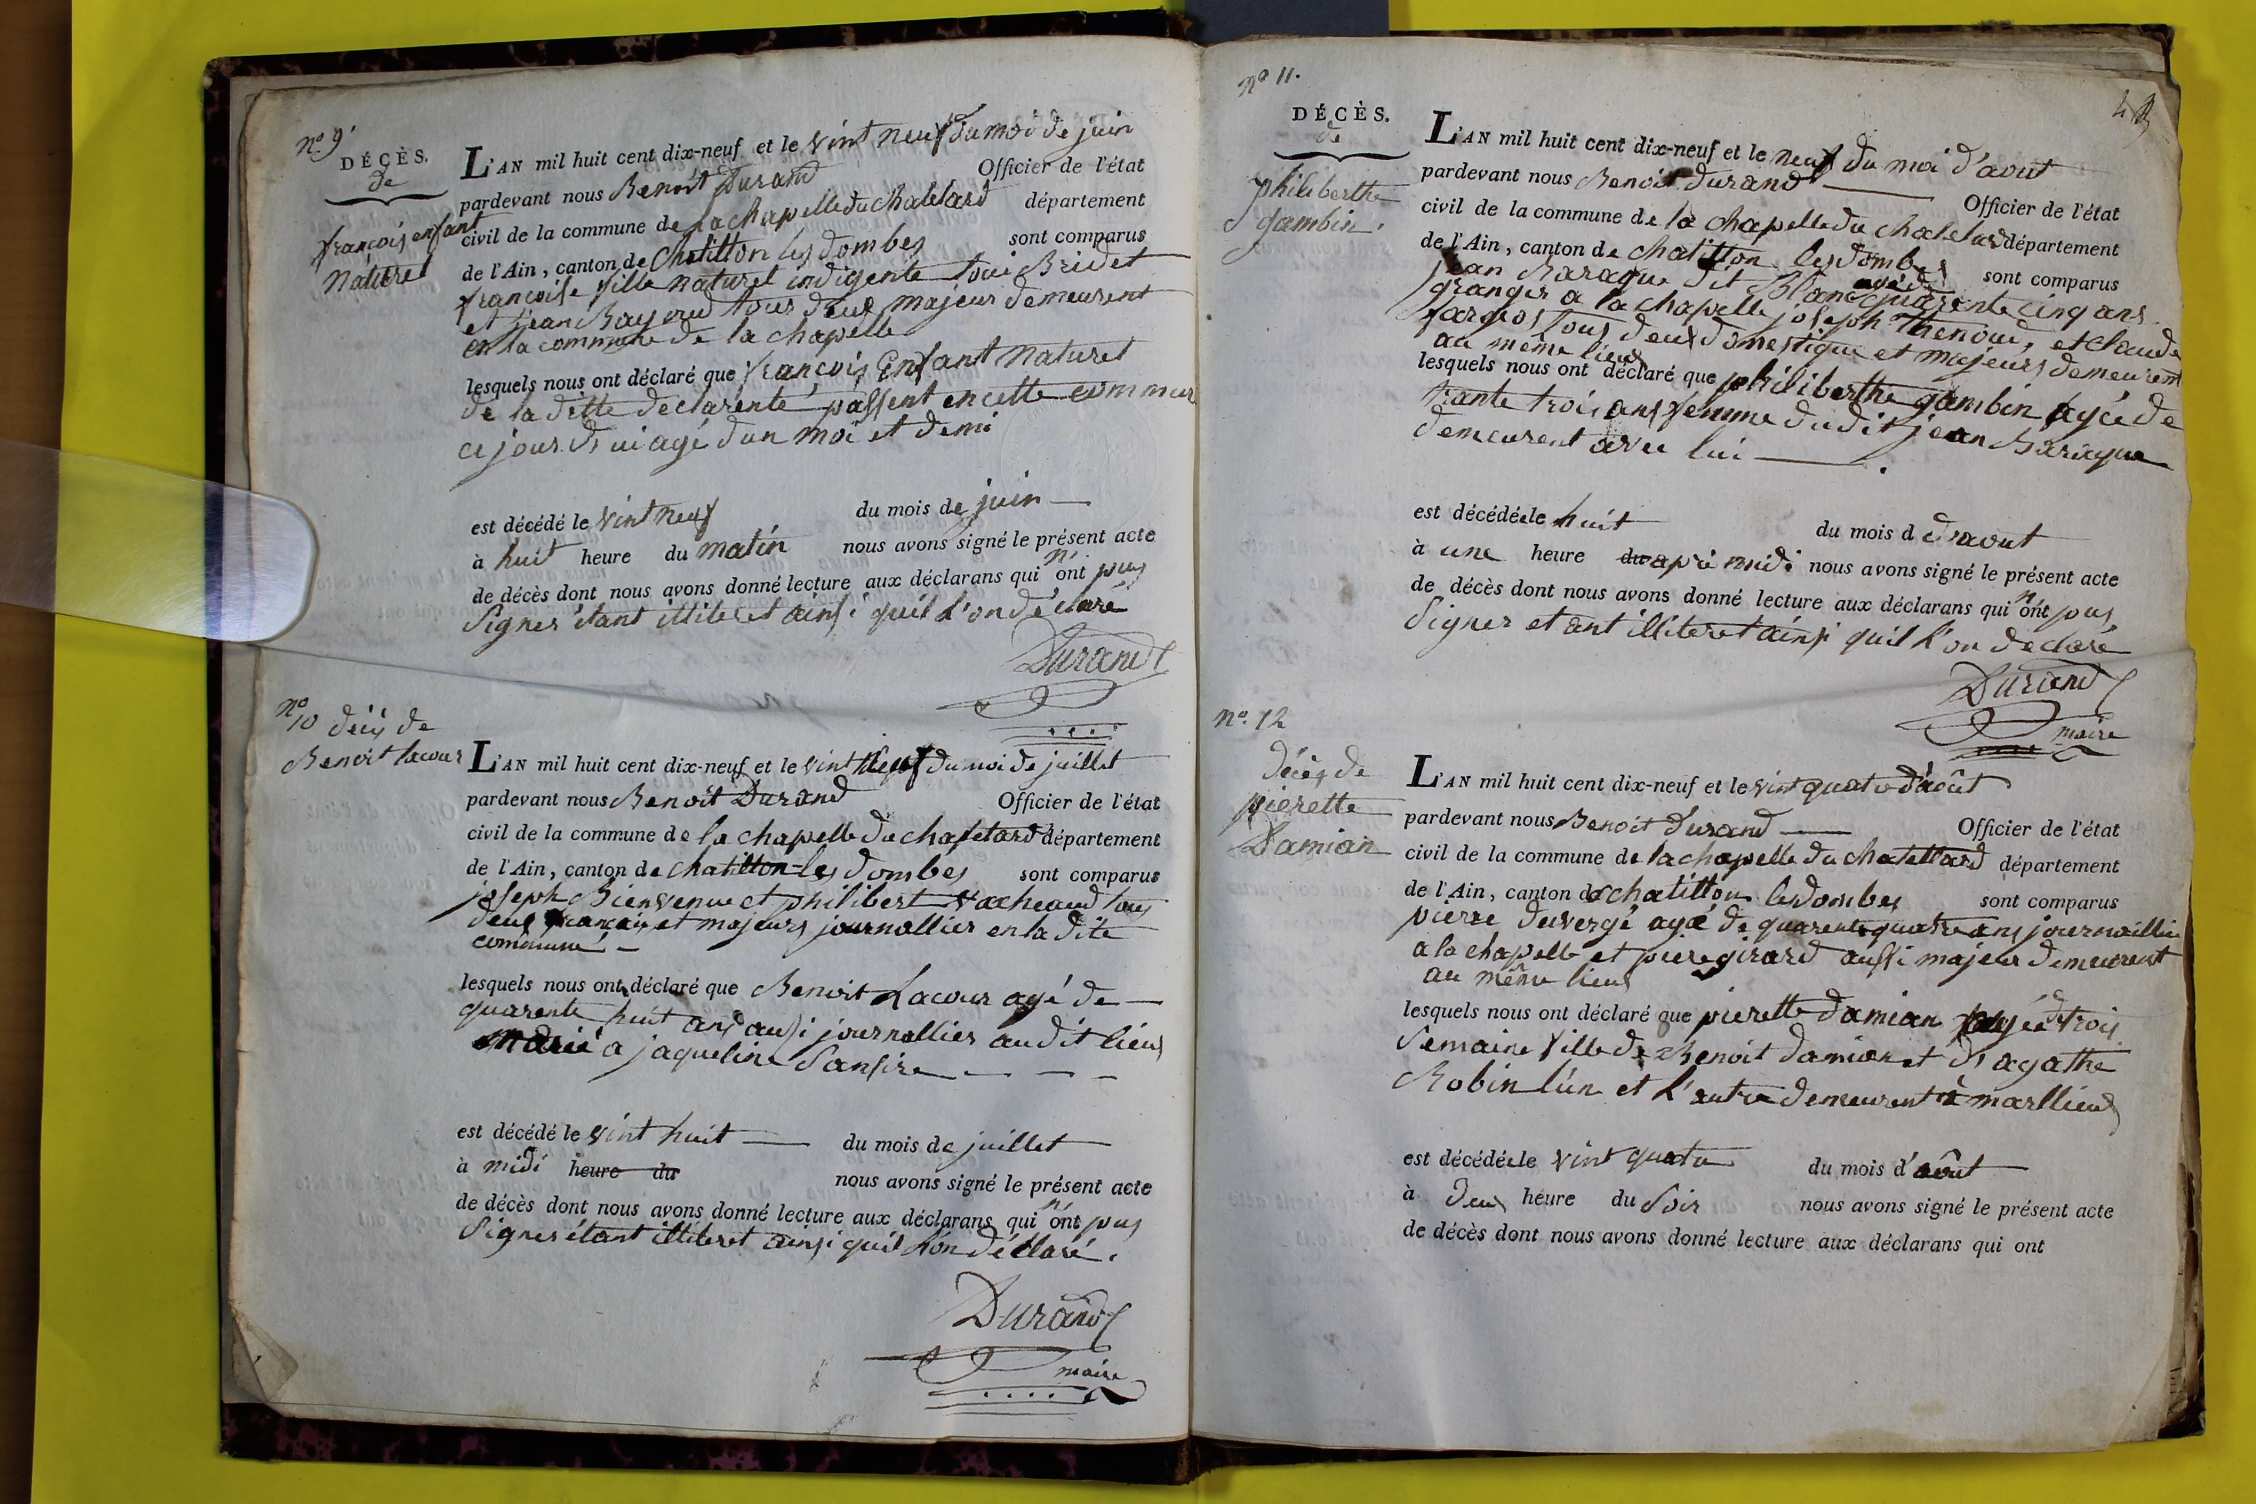 no 9
DÉCÈS.
de
françois enfant
Naturel
L'AN mil huit cent dix-neuf et le vint neuf du moi de juin
pardevant nous Benoit Durand Officier de l'état
civil de la commune de la chapelle du chatelard département
de l'Ain, canton de Chatillon les dombes sont comparus
françoise fille naturel indigente Bridet
et jean tous deux majeur demeurent
en la commune de la chapelle
lesquels nous ont déclaré que françois Enfant Naturel
de la ditte declarente passent en cette commune
ce jour d'ui agé d'un moi et demi
est décédé le vint neuf du mois de juin
à huit heure du matin nous avons signé le présent acte
de décès dont nous avons donné lecture aux déclarans qui n'ont pas
Signer étant illiteret ainsi quil l'on déclaré
Durand
no 10 décès de
Benoit Lacour
L'AN mil huit cent dix-neuf et le vint neuf du moi de juillet
pardevant nous Benoit Durand Officier de l'état
civil de la commune de la chapelle du chatelard département
de l'Ain, canton de chatillon les dombes sont comparus
joseph Bienvenue et philibert tous
deux français et majeurs journallier en la dite
commune
lesquels nous ont déclaré que Benoit Lacour agé de
quarente huit ans aussi journallier au dit lieux
marié a jaqueline Sansire
est décédé le vint huit du mois de juillet
à midi heure du nous avons signé le présent acte
de décès dont nous avons donné lecture aux déclarans qui n'ont pas
Signer étant illiteret ainsi quil l'on déclaré.
Durand
maire
no 11.
DÉCÈS.
de
philiberthe
gambin
L'AN mil huit cent dix-neuf et le neuf du moi d'aout
pardevant nous Benoit durand Officier de l'état
civil de la commune de la chapelle du chatelard département
de l'Ain, canton de chatillon les dombes sont comparus
jean Baraque dit Blanc agé de quarente cinq ans
granger a la chapelle joseph Thenoud, et claude
fargeos tous deux domestique et majeurs demeurent
au même lieux
lesquels nous ont déclaré que philiberthe gambin agée de
trante trois ans femme du dit jean Baraque
demeurent avec lui
est décédée le huit du mois d d'aout
à une heure du apré midi nous avons signé le présent acte
de décès dont nous avons donné lecture aux déclarans qui n'ont pas
Signer etant illiteret ainsi quil l'on déclaré
Durand
maire
no. 12
Décès de
pierette
Damian
L'AN mil huit cent dix-neuf et le vint quatre d'août
pardevant nous Benoit durand Officier de l'état
civil de la commune de la chapelle du chatellard département
de l'Ain, canton de chatillon les dombes sont comparus
pierre duvergé agé de quarente quatre ans journaillier
a la chapelle et piere girard aussi majeur demeurent
au même lieux
lesquels nous ont déclaré que pierette damian agée de trois
Semaine fille de Benoit damian et d'agathe
Robin l'un et l'autre demeurent à marllieux
est décédée le vint quatre du mois d'août
à deux heure du Soir nous avons signé le présent acte
de décès dont nous avons donné lecture aux déclarans qui ont